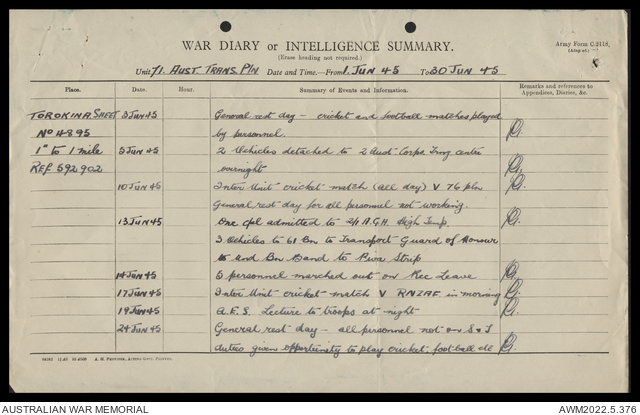 WAR DIARY or INTELLIGENCE SUMMARY.
(Erase heading not required.)
Army Form C.2118.
Unit 71. Aust Trans. Pln Date and Time.—From 1 Jun 45 To 30 Jun 45
Place. Date. Hour. Summary of Events and Information. Remarks and references to Appendices, Diaries, &c.
Torokina Sheet 3 Jun 45 General rest day - cricket and football matches played
No 4895 by personnel.
1" to 1 mile 5 Jun 45 2 Vehicles detached to 2 Aust Corps Trng center
Ref 592902 overnight
10 Jun 45 Inter Unit cricket match (all day) V 76 pln
General rest day for all personnel not working.
13 Jun 45 One cpl admitted to 2/1 A.G.H. High Temp.
3 Vehicles to 61 Bn to Transport Guard of Honour
and Bn Band to Piva Strip
14 Jun 45 5 personnel marched out on Rec Leave
17 Jun 45 Inter Unit cricket match V RNZAF in morning
19 Jun 45 A.E.S. Lecture to troops at night
24 Jun 45 General rest day - all personnel not on S & T
duties given opportunity to play cricket, football etc
AUSTRALIAN WAR MEMORIAL AWM2022.5.376